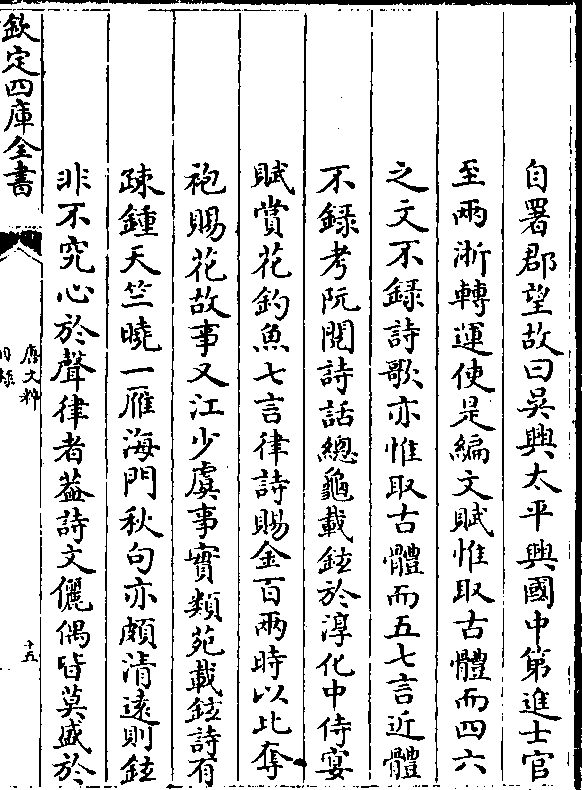 自署郡望故曰吳興太平興國中第進士官
至兩浙轉運使是編文賦惟取古體而四六
之文不錄詩歌亦惟取古體而五七言近體
不錄考阮閱詩話總龜載鉉於淳化中侍宴
賦賞花釣魚七言律詩賜金百兩時以比奪
袍賜花故事又江少虞事實類苑載鉉詩有
疎鍾天竺曉一雁海門秋句亦頗清遠則鉉
非不究心於聲律者葢詩文儷偶皆莫盛於
欽定四庫全書
唐文粹
目錄
十五